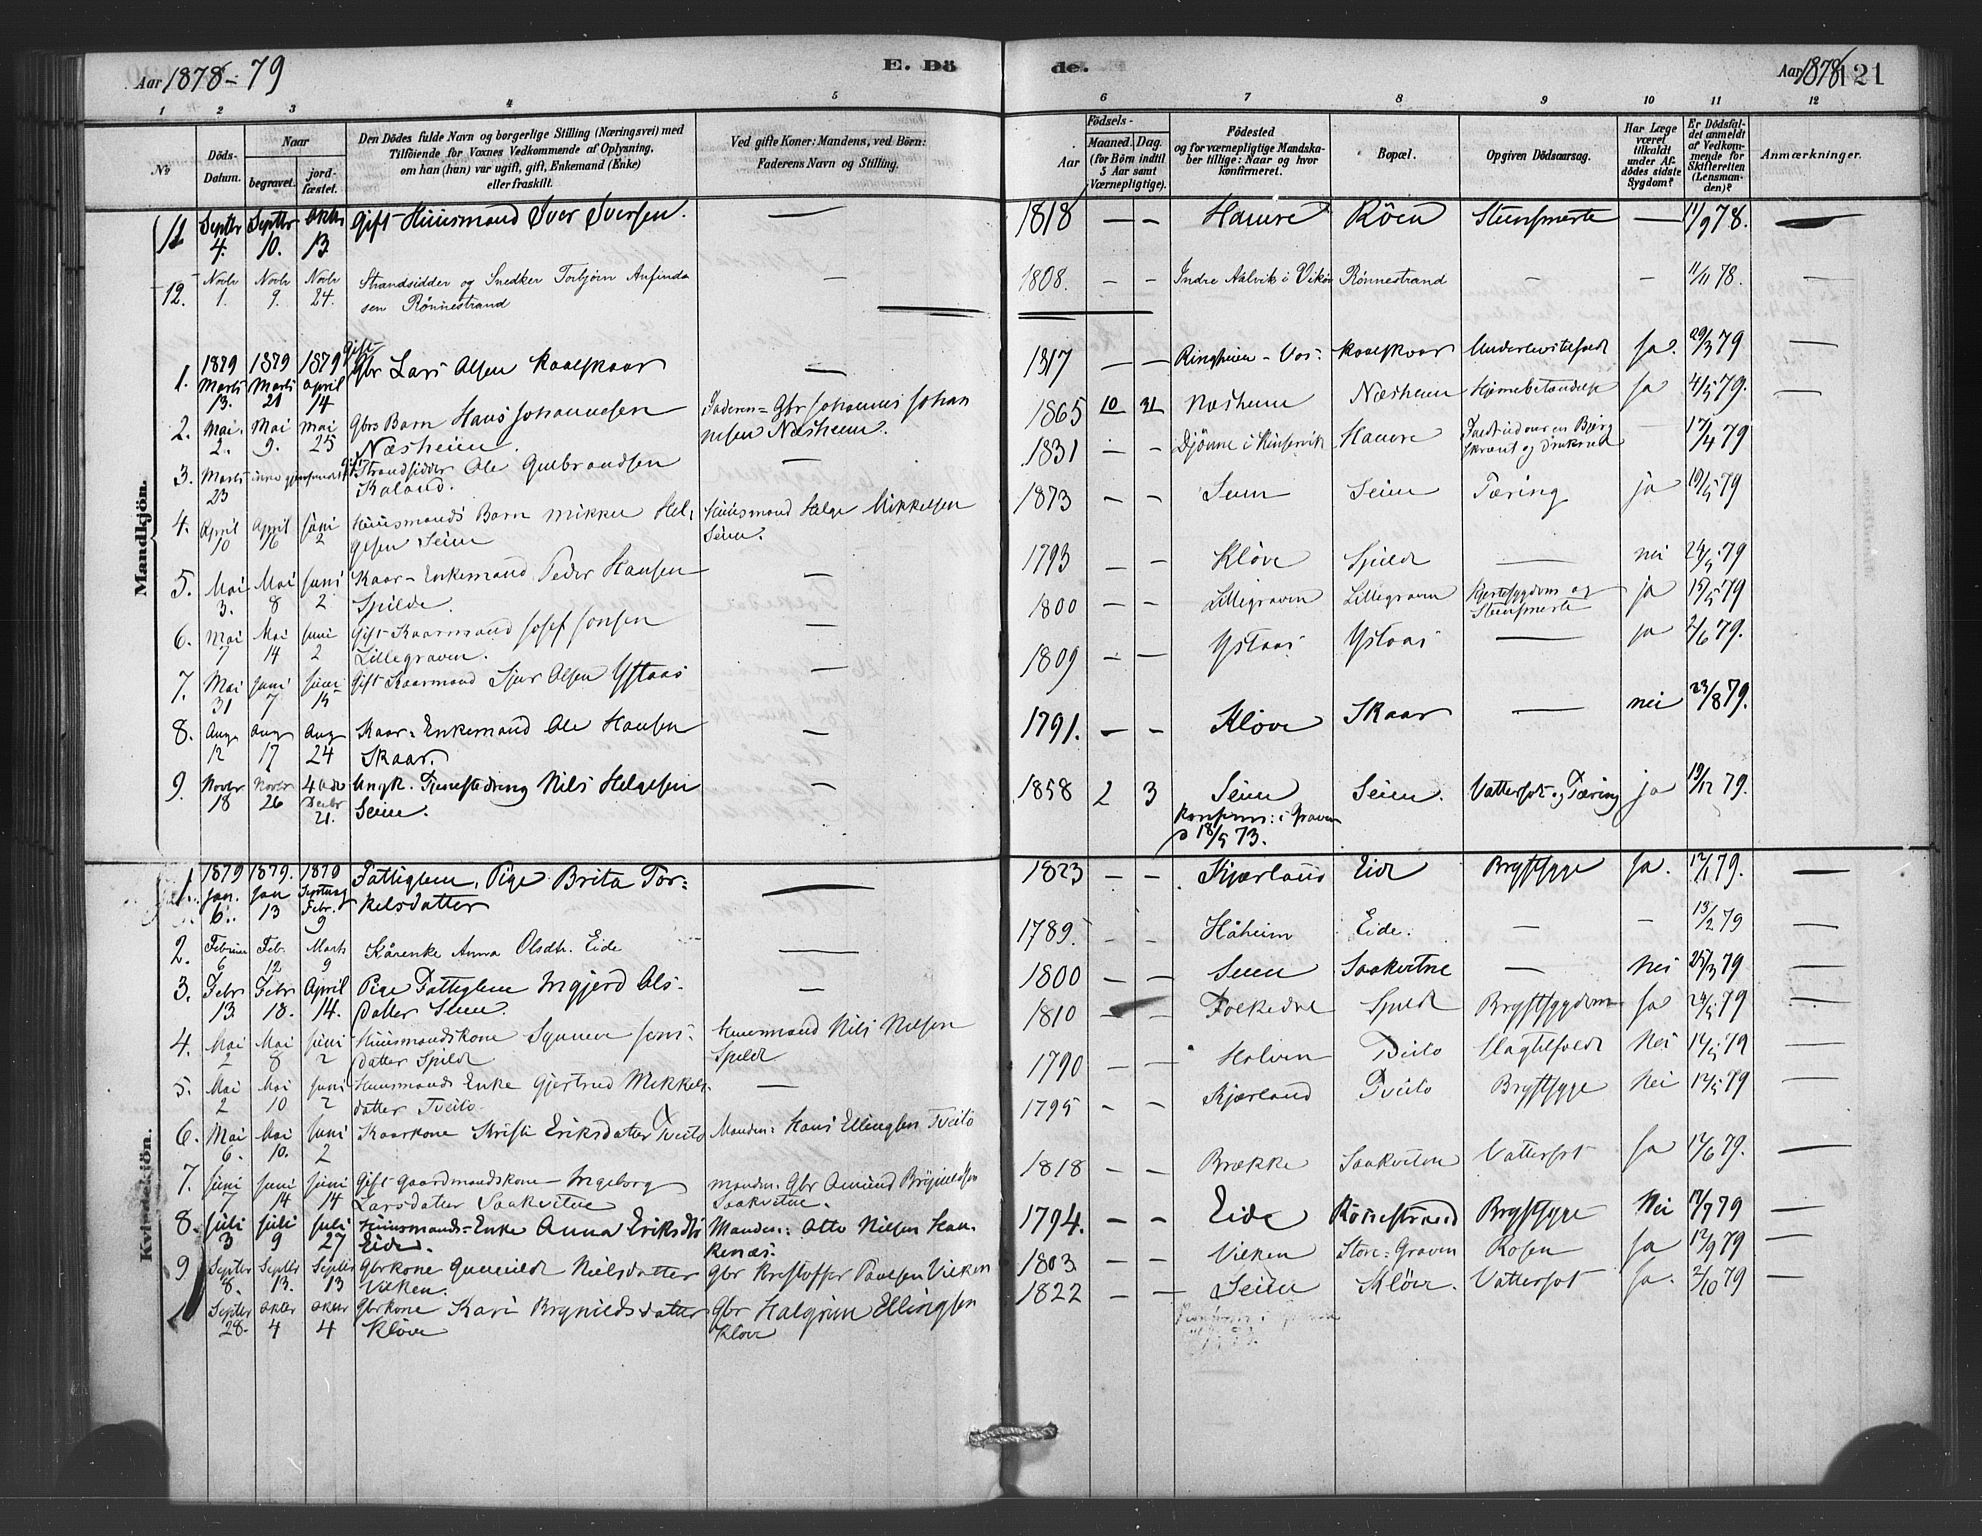 Aar 1878 - 79
E. Dö
de.
Aar 1878
121
1 2 3 4 5 6 7 8 9 10 11 12
No
Döds-Datum.
Naar
begravet.
jord-fæstet.
Den Dödes fulde Navn og borgerlige Stilling (Næringsvei) med
Tilföiende for Voxnes Vedkommende af Oplysning,
om han (hun) var ugift, gift, Enkemand (Enke)
eller fraskilt.
Ved gifte Koner: Mandens, ved Börn:
Faderens Navn og Stilling.
Födsels-
Aar
Maaned.
(for Börn indtil
5 Aar samt
Værnepligtige).
Dag.
Födested
og for værnepligtige Mandska-
ber tillige: Naar og hvor
konfirmeret.
Bopæl.
Opgiven Dödsaarsag.
Har Læge
været
tilkaldt
under Af-
dödes sidste
Sygdom?
Er Dödsfal-
det anmeldt
af Vedkom-
mende for
Skifteretten
(Lensman-
den)?
Anmærkninger.
Mandkjön.
11 Septbr 4. Septbr 10. Oktbr 13 Gift Huusmand Iver Iversen. — 1818 — — Haure Röen Steensmerte — 11/9 78. —
12. Novbr 1. Novbr 9. Novbr 24. Strandsidder og Snedker Torbjörn Anfinds
sen Rönnestrand — 1808. — — Indre Aalvik i Vikör Rönnestrand — — 11/11 78. —
1. 1879 Marts 13. 1879 Marts 21 1879 April 14 Gift Gbr Lars Olsen Kaalskaar — 1817 — — Ringheim - Vos: Kaalskaar Underlivslfeldt Ja. 29/3 79 —
2. Mai. 2. Mai 9. Mai 25 Gbrs Barn Hans Johannesen
Næsheim. Faderen = Gbr Johannes Johan
nesen Næsheim. 1865 10 21 Næsheim Næsheim Hjernebetændelse Ja 4/5 79. —
3. Marts 23 Gift Strandsidder Ole Gulbrandsen
Kaland. — 1831 — — Djönne i Kinservik Haure en Bjerg
skrænt og druknede — 17/4 79 —
4. April 10 April 16 Juni 2 Huusmands Barn Mikkel Hel-
gesen Seim Huusmand Helge Mikkelsen
Seim. 1873 — — Seim Seim Tæring ja 19/5 79 —
5. Mai 3. Mai 8 Juni 2 Kaar-Enkemand Peder Hansen
Spilde. — 1793 — — Klöve Spilde — nei 24/5 79 —
6. Mai 7 Mai 14 Juni 2 Gift Kaarmand Josef Jonsen
Lillegraven. — 1800 — — Lillegraven Lillegraven Hjertesygdom og
Steensmerte ja 15/5 79 —
7. Mai 31 Juni 7 Juni 15 Gift Kaarmand Sjur Olsen Ystaas — 1809 — — Ystaas Ystaas — ja 2/6 79. —
8. Aug. 12 Aug 17 Aug 24 Kaar-Enkemand Ole Hansen
Skaar. — 1791. — — Klöve Skaar — nei 23/8 79. —
9. Novbr 18 Novbr 26 Decbr 21. Ungk. Tjenestedreng Nils Helgesen
Seim. — 1858 2 3 Seim
Konfirm: i Graven
18/5 73. Seim. Vattersot og Tæring ja 19/12 79. —
Kvindekjön.
1. 1879 Jan. 6. 1879. Jan 13 1879 Febr. 9 Fattiglem, Pige Brita Tor-
kelsdatter — 1823 — — Kjærland Eide Brystsyge Ja. 17/1 79. —
2. Februar 6 Feb. 12 Marts 9 Kårenke Anna Olsdtr. Eide — 1789. — — Håheim Eide. — — 13/2 79 —
3. Febr 13 Febr 18. April 14. Pige Fattiglem Ingjerd Ols-
datter Seim. — 1800 — — Seim Saakvitne — Nei 25/3 79 —
4. Mai 2 Mai 8 Juni 2 Huusmandskone Synneve Jons-
datter Spilde Huusmand Nils Nilsen
Spilde 1810 — — Folkedal Spilde Brystsygdom Ja 24/5 79 —
5. Mai 2 Mai 10 Juni 2 Huusmands Enke Gjertrud Mikkels-
datter Tveito. — 1790 — — Holven Tveito Slagtilfeldt Nei 14/5 79 —
6. Mai 6. Mai 10. Juni 2 Kaarkone Kristi Eriksdatter Tveito Manden: Hans Ellingsen Tveito 1795 — — Kjærland Tveito Brystsyge Nei 12/5 79 —
7. Juni 7 Juni 14 Juni 14 Gift Gaardmandskone Ingeborg
Larsdatter Saakvitne Manden: Gbr Amund Brynildsen
Saakvitne. 1818 — — Brække Saakvitne Vattersot Ja 17/6 79. —
8. Juli 3 Juli 9 Juli 27 Huusmands-Enke Anna Eriksdtr
Eide. Manden: Otto Nilsen Han-
kenæs. 1794. — — Eide Rönnestrand Brystsyge Nei 17/7 79 —
9 Septbr 8. Septbr 13. Septbr 13 Gbrkone Gunnild Nielsdatter
Vilken. Gbr Kristoffer Paulsen Vilken 1803 — — Vilken Store-Graven Rosen Ja 12/9 79 —
10 Septbr 28. Oktbr 4 Oktbr 4 Gbrkone Kari Brynildsdatter
Klöve Gbr Halgrim Ellingsen
Klöve 1822 — — Seim Klöve. Vattersot Ja. 2/10 79 —